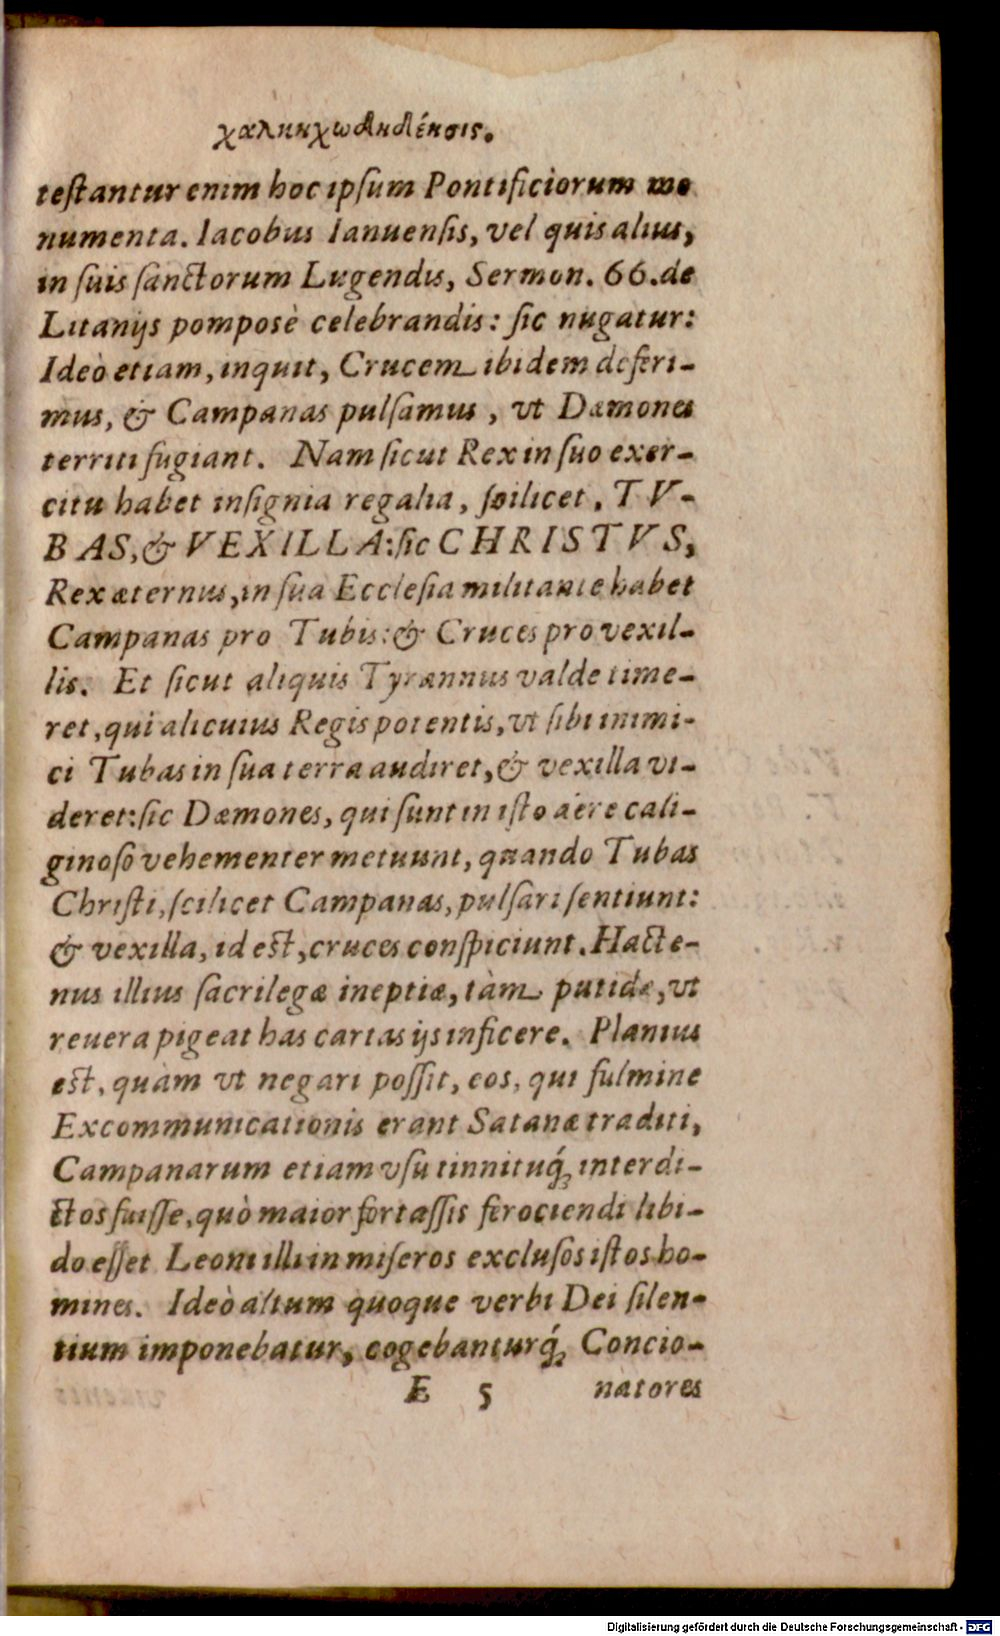 χαληκχωδηδίησις.
teſtantur enim hoc ipſum Pontificiorum mo
numenta. Iacobus Ianuenſis, vel quis alius,
in ſuis ſanctorum Lugendis, Sermon. 66. de
Litanijs pomposè celebrandis: ſic nugatur:
Ideò etiam, inquit, Crucem ibidem deferi-
mus, & Campanas pulſamus, vt Dæmones
territi fugiant. Nam ſicut Rex in ſuo exer-
citu habet inſignia regalia, ſcilicet, TV-
BAS, & VEXILLA: ſic CHRISTVS,
Rex æternus, in ſua Eccleſia militante habet
Campanas pro Tubis: & Cruces pro vexil-
lis. Et ſicut aliquis Tyrannus valde time-
ret, qui alicuius Regis potentis, vt ſibi inimi-
ci Tubas in ſua terra audiret, & vexilla vi-
deret: ſic Dæmones, qui ſunt in iſto aëre cali-
ginoſo vehementer metuunt, quando Tubas
Chriſti, ſcilicet Campanas, pulſari ſentiunt:
& vexilla, id eſt, cruces conſpiciunt. Hacte-
nus illius ſacrilegæ ineptiæ, tàm putidæ, vt
reuera pigeat has cartas ijs inficere. Planius
eſt, quàm vt negari poſſit, eos, qui fulmine
Excommunicationis erant Satanæ traditi,
Campanarum etiam vſu tinnituq́; interdi-
ctos fuiſſe, quò maior fortaſſis ferociendi libi-
do eſſet Leoni illi in miſeros excluſos iſtos ho-
mines. Ideò altum quoque verbi Dei ſilen-
tium imponebatur, cogebanturq́; Concio-
E 5 natores
Digitalisierung gefördert durch die Deutsche Forschungsgemeinschaft - DFG